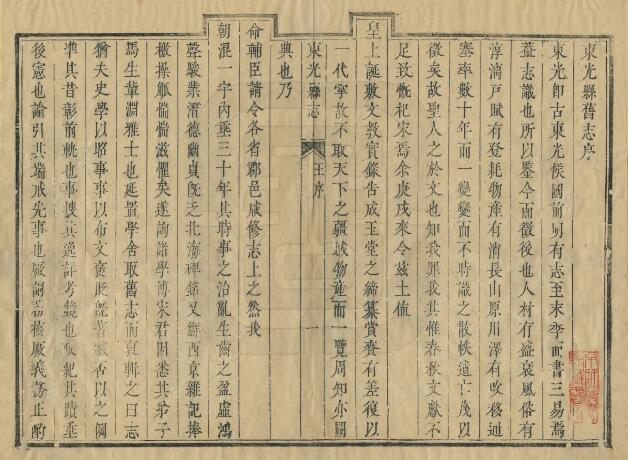 東光縣舊志序
東光即古東光侯國前明有志至末季而書三易焉
蓋志識也所以鑒今而徵後也人材有盛衰風俗有
淳漓戸賦有登耗物產有消長山原川澤有改移通
塞率數十年而一變變而不時識之散帙遺亡茂以
徵矣故聖人之於文也知我罪我其惟春秋文獻不
足致慨杞宋焉余庚戌來令茲土值
皇上誕敷文教實錄告成玉堂之締纂賞賚有差復以
一代寧故不取天下之疆域物產而一覽周知亦闕
典也乃
東光縣志
王序
一
命輔臣請令各省郡邑咸修志上之然我
朝混一宇內垂三十年其時事之治亂生齒之盈虛鴻
聲駿業潛德幽貞旣乏北海禆箱又鮮西京雜記捧
檄操觚惴惴滋懼矣遂詢諸學博宋君因悉其弟子
馬生華淵雅士也延置學舍取舊志而裒輯之曰志
猶夫史學以昭事事以布文褒貶旣著臧否以之闕
準其昔彰前軌也事搜其逸詳考鏡也 紀其蹟垂
後憲也論引其端戒先事也 詞務核厥義務正酌